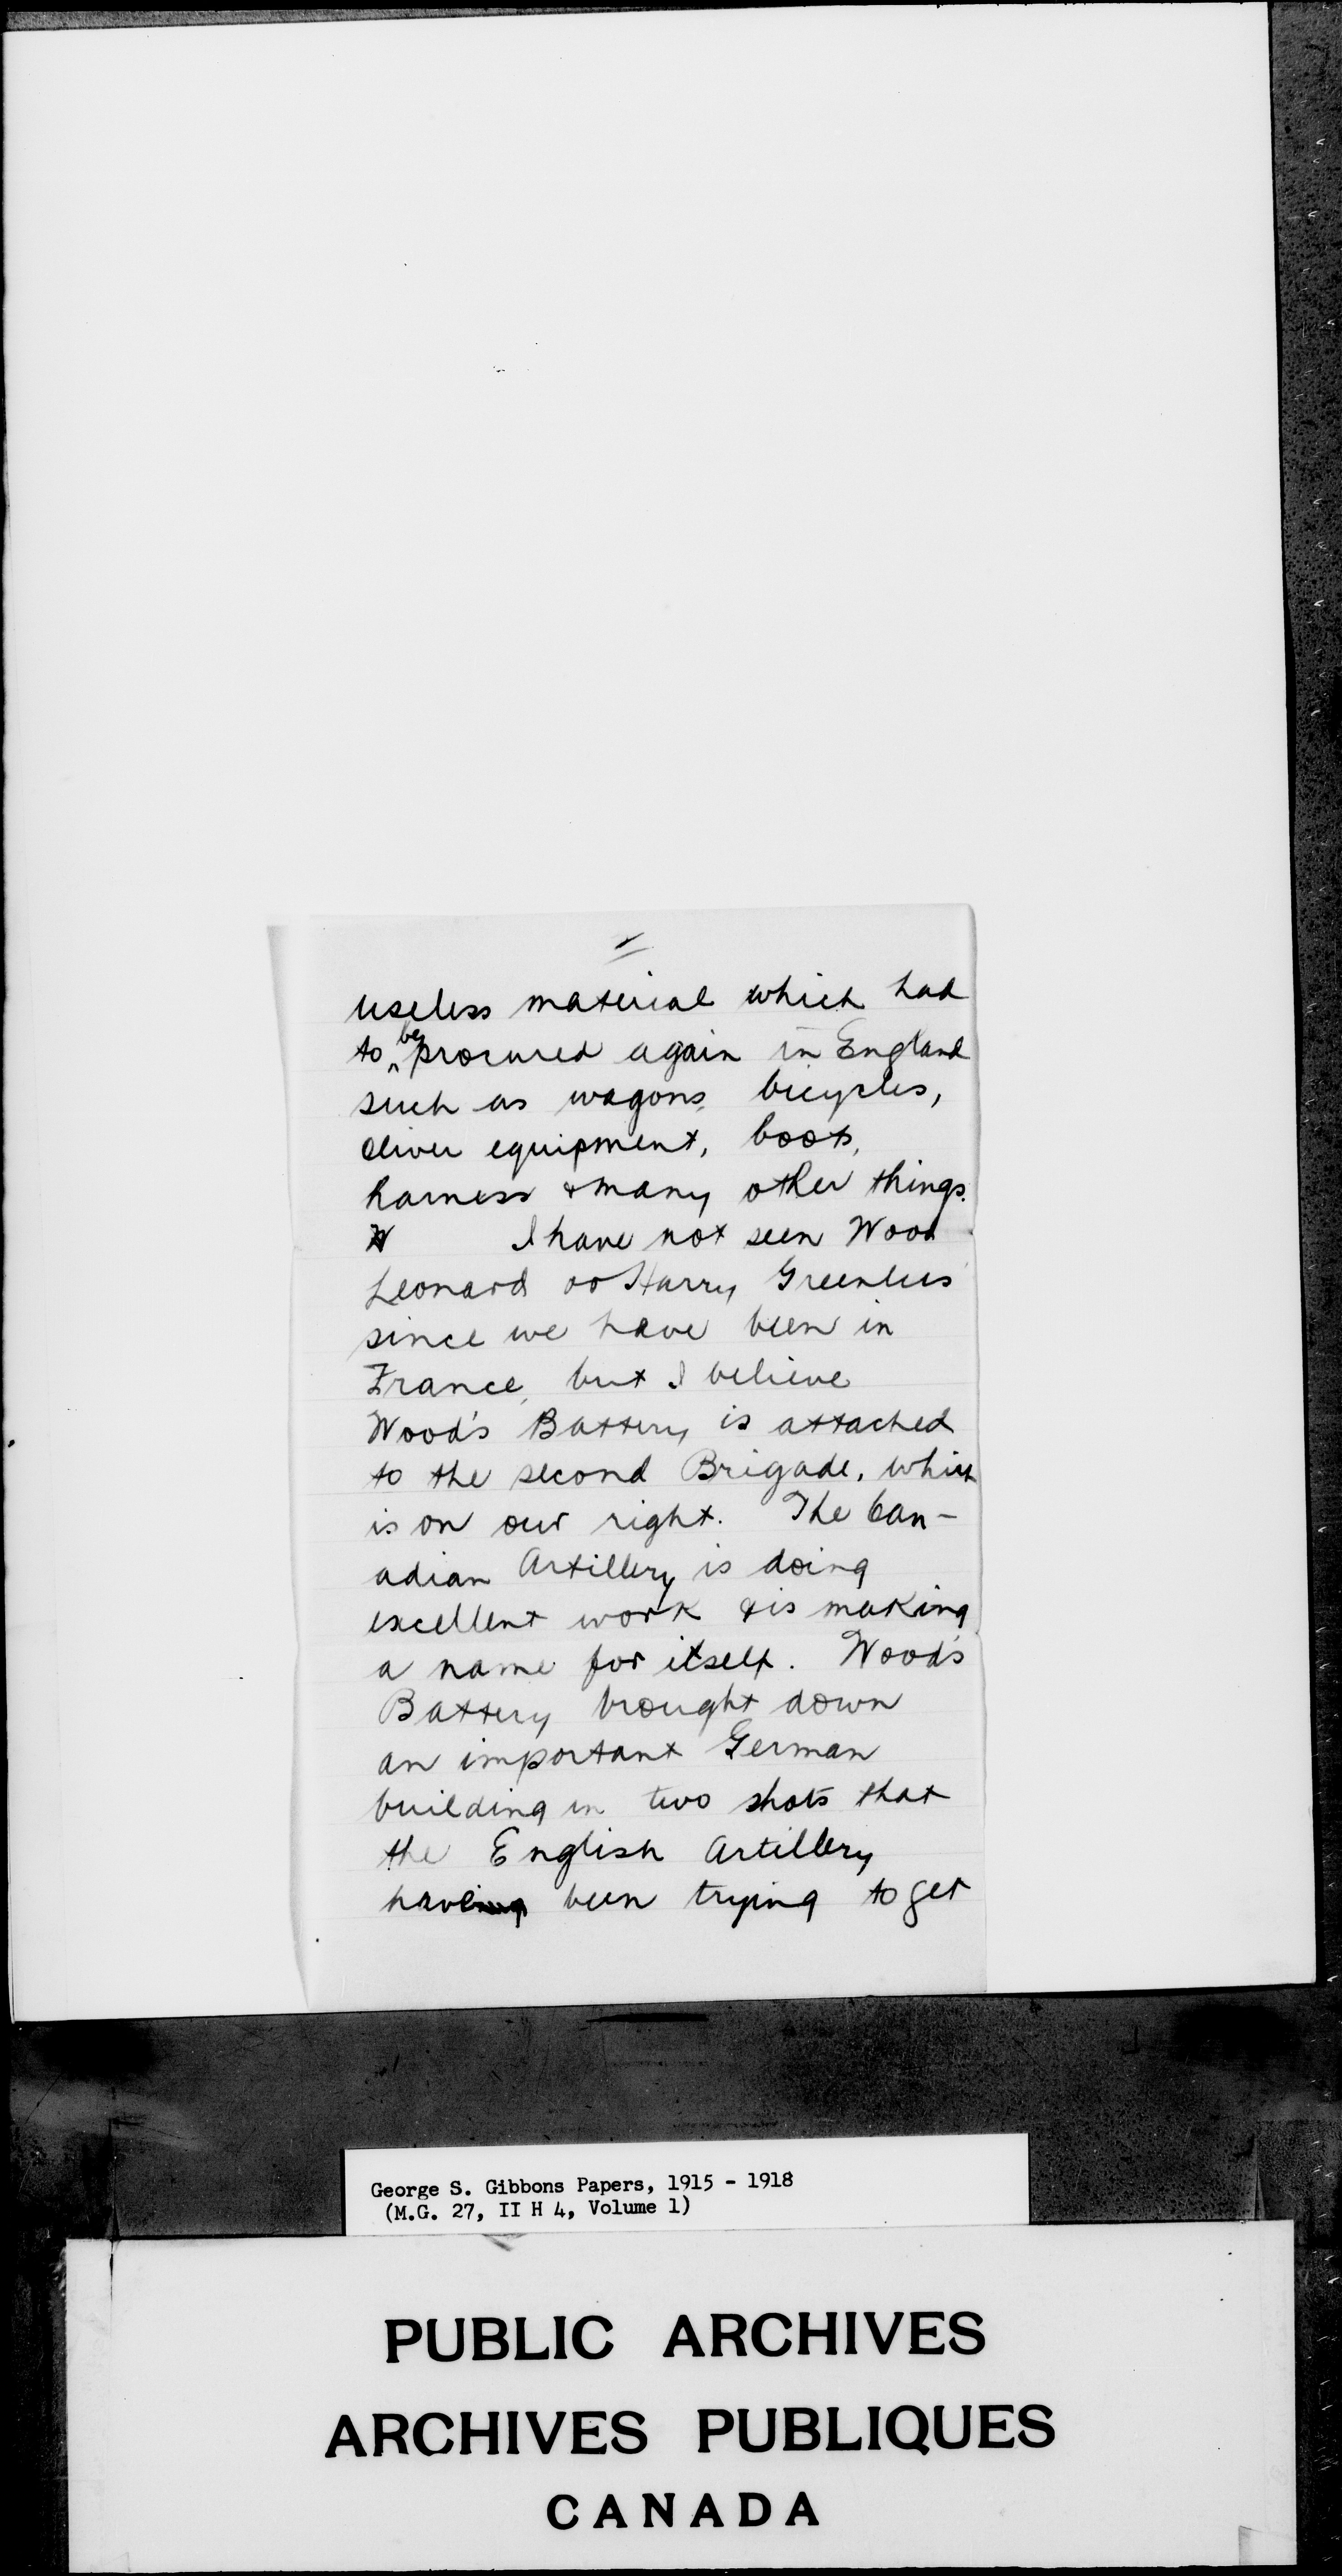 useless material which had
to be procured again in England
such as wagons, bicycles,
Oliver equipment, boots,
harness & many other things.
I have not seen Wood
Leonard or Harry Greenlees
since we have been in
France, but I believe
Wood's Battery is attached
to the second Brigade, which
is on our right. The Can-
adian Artillery is doing
excellent work & is making
a name for itself. Wood's
Battery brought down
an important German
building in two shots that
the English Artillery
have been trying to get
George S. Gibbons Papers, 1915 - 1918
(M.G. 27, II H 4, Volume 1)
PUBLIC ARCHIVES
ARCHIVES PUBLIQUES
CANADA